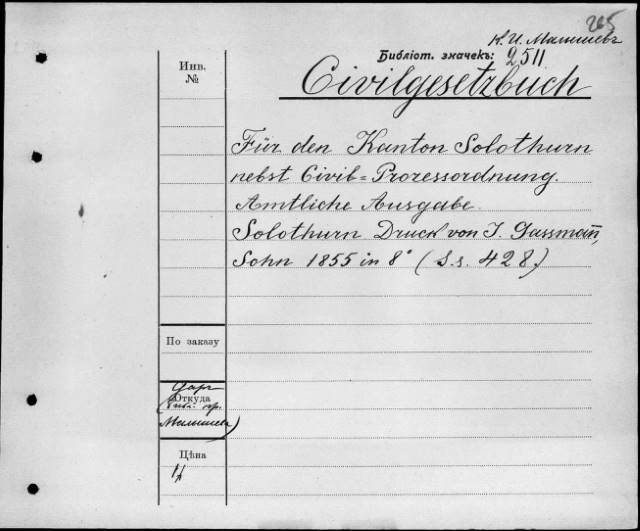 265
К. И. Малышевъ
Библіот. значекъ: 2511
Инв.
№
Civilgesetzbuch
Für den Kanton Solothurn
nebst Civil=Prozessordnung.
Amtliche Ausgabe.
Solothurn Druck von J. Gassmañ,
Sohn 1855 in 8° (S.s. 428.)
По заказу
Откуда
Даръ
Малышева)
Цѣна